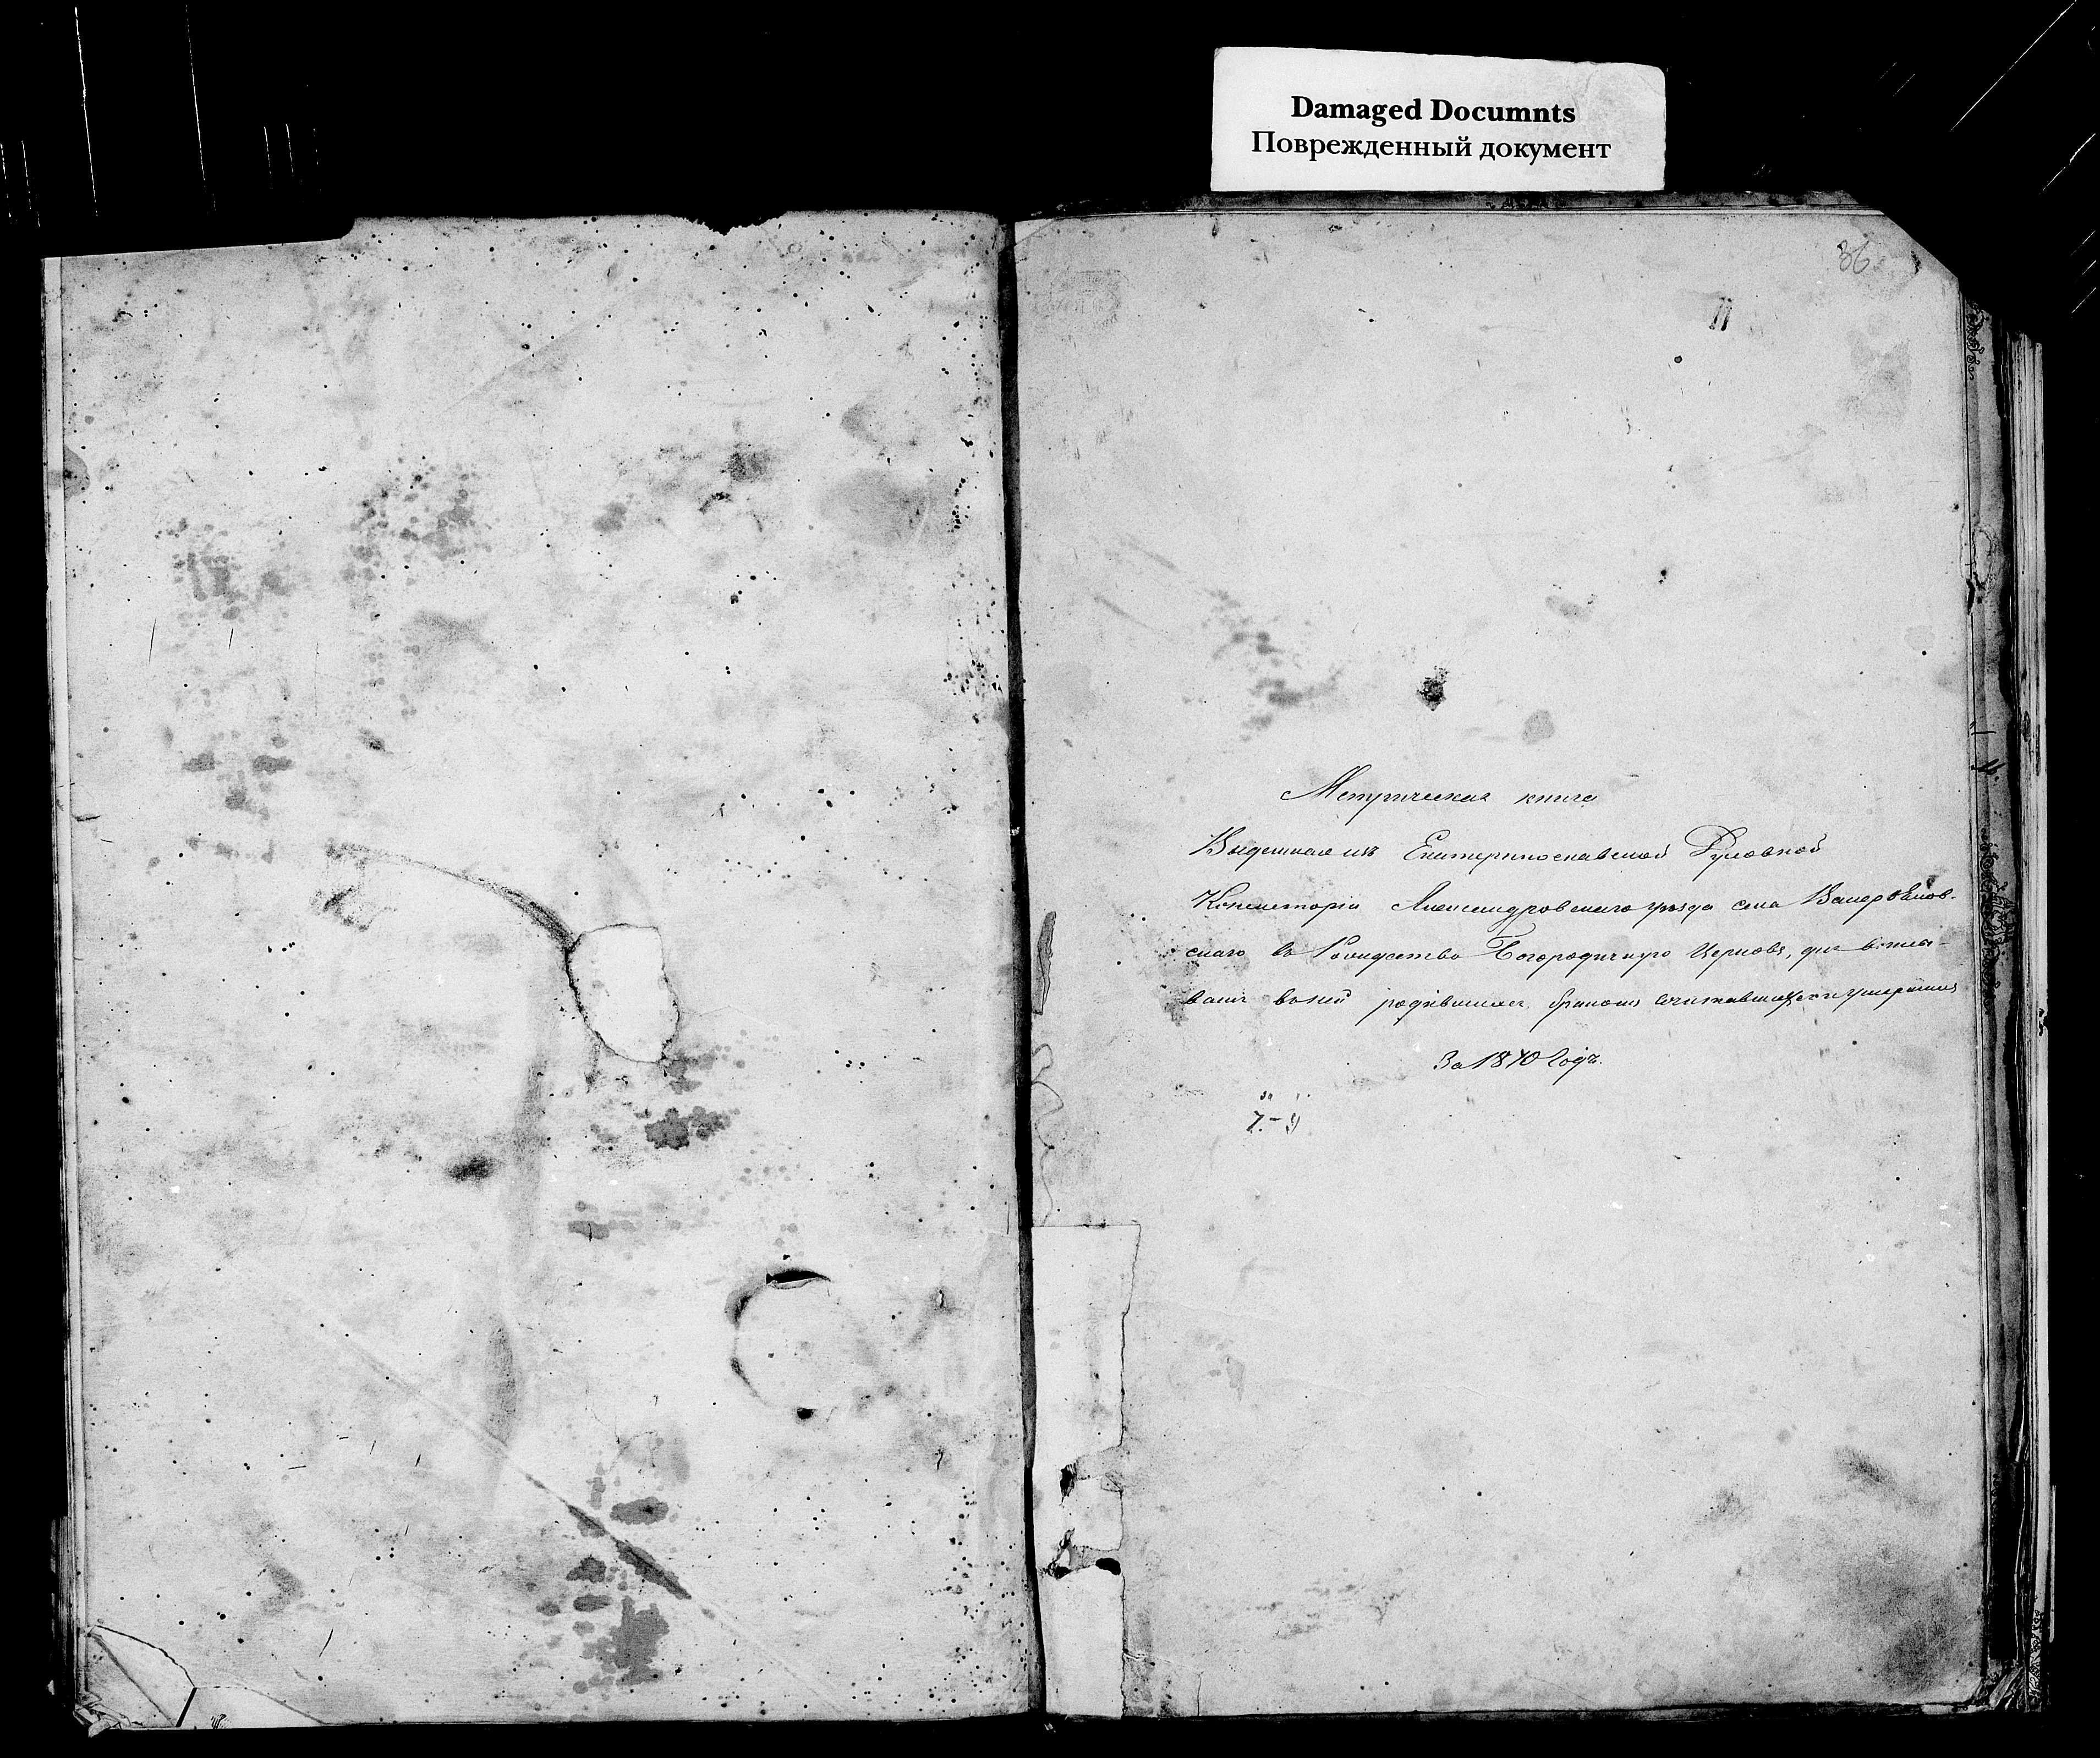 Damaged Documnts
Поврежденный документ
36
Метрическая книга
Выданная изъ Екатеринославской Духовной
Консисторіи Александровскаго уѣзда села
скаго въ Рождество Богородичную Церковь, для
родившихся, бракомъ сочитавшихся и умершихъ
За 1870 Годъ.